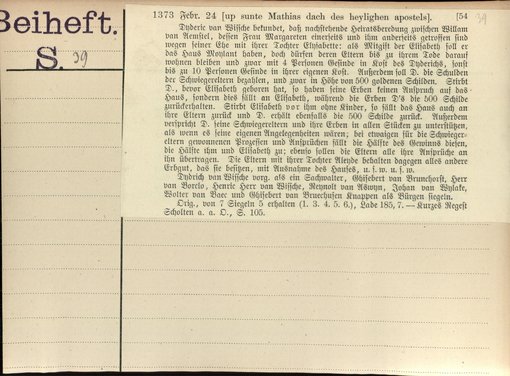 Beiheft.
S. 39
1373 Febr. 24 [up sunte Mathias dach des heylighen apostels]. [54
39
Dyderic van Wissche bekundet, daß nachstehende Heiratsberedung zwischen Willam
van Rensse, dessen Frau Margareten einerseits und ihm anderseits getroffen sind
wegen seiner Ehe mit ihrer Tochter Elysabette: als Mitgift der Elisabeth soll er
das Haus Moylant haben, doch dürfen deren Eltern bis zu ihrem Tode darauf
wohnen bleiben und zwar mit 4 Personen Gesinde in Kost des Dyderichs, sonst
bis zu 10 Personen Gesinde in ihrer eigenen Kost. Außerdem soll D. die Schulden
der Schwiegereltern bezahlen, und zwar in Höhe von 500 goldenen Schilden. Stirbt
D., bevor Elisabeth geboren hat, so haben seine Erben keinen Anspruch auf das
Haus, sondern dies fällt an Elisabeth, während die Erben D's die 500 Schilde
zurückerhalten. Stirbt Elisabeth vor ihm ohne Kinder, so fällt das Haus auch an
ihre Eltern zurück und D. erhält ebenfalls die 500 Schilde zurück. Außerdem
verspricht D. seine Schwiegereltern und ihre Erben in allen Stücken zu unterstützen,
als wenn es seine eigenen Angelegenheiten wären; bei etwaigen für die Schwieger-
eltern gewonnenen Prozessen und Ansprüchen fällt die Hälfte des Gewinns diesen,
die Hälfte ihm und Elisabeth zu; ebenso sollen die Eltern alle ihre Ansprüche an
ihn übertragen. Die Eltern mit ihrer Tochter Aleyde behalten dagegen alles andere
Erbgut, das sie besitzen, mit Ausnahme des Hauses, u. s. w. u. s. w.
Dyderic van Wissche vorg. als ein Sachwalter, Ghisebert van Brunchorst, Her
van Borclo, Henric Herr van Wissche, Reynolt van Aswyn, Johan van Wylake,
Wolter van Baec und Ghisebert van Bruechusen Knappen als Bürgen siegeln.
Orig., von 7 Siegeln 5 erhalten (1. 3. 4. 5. 6.), Lade 185,7. — Kurzes Regest
Scholten a. a. O., S. 105.